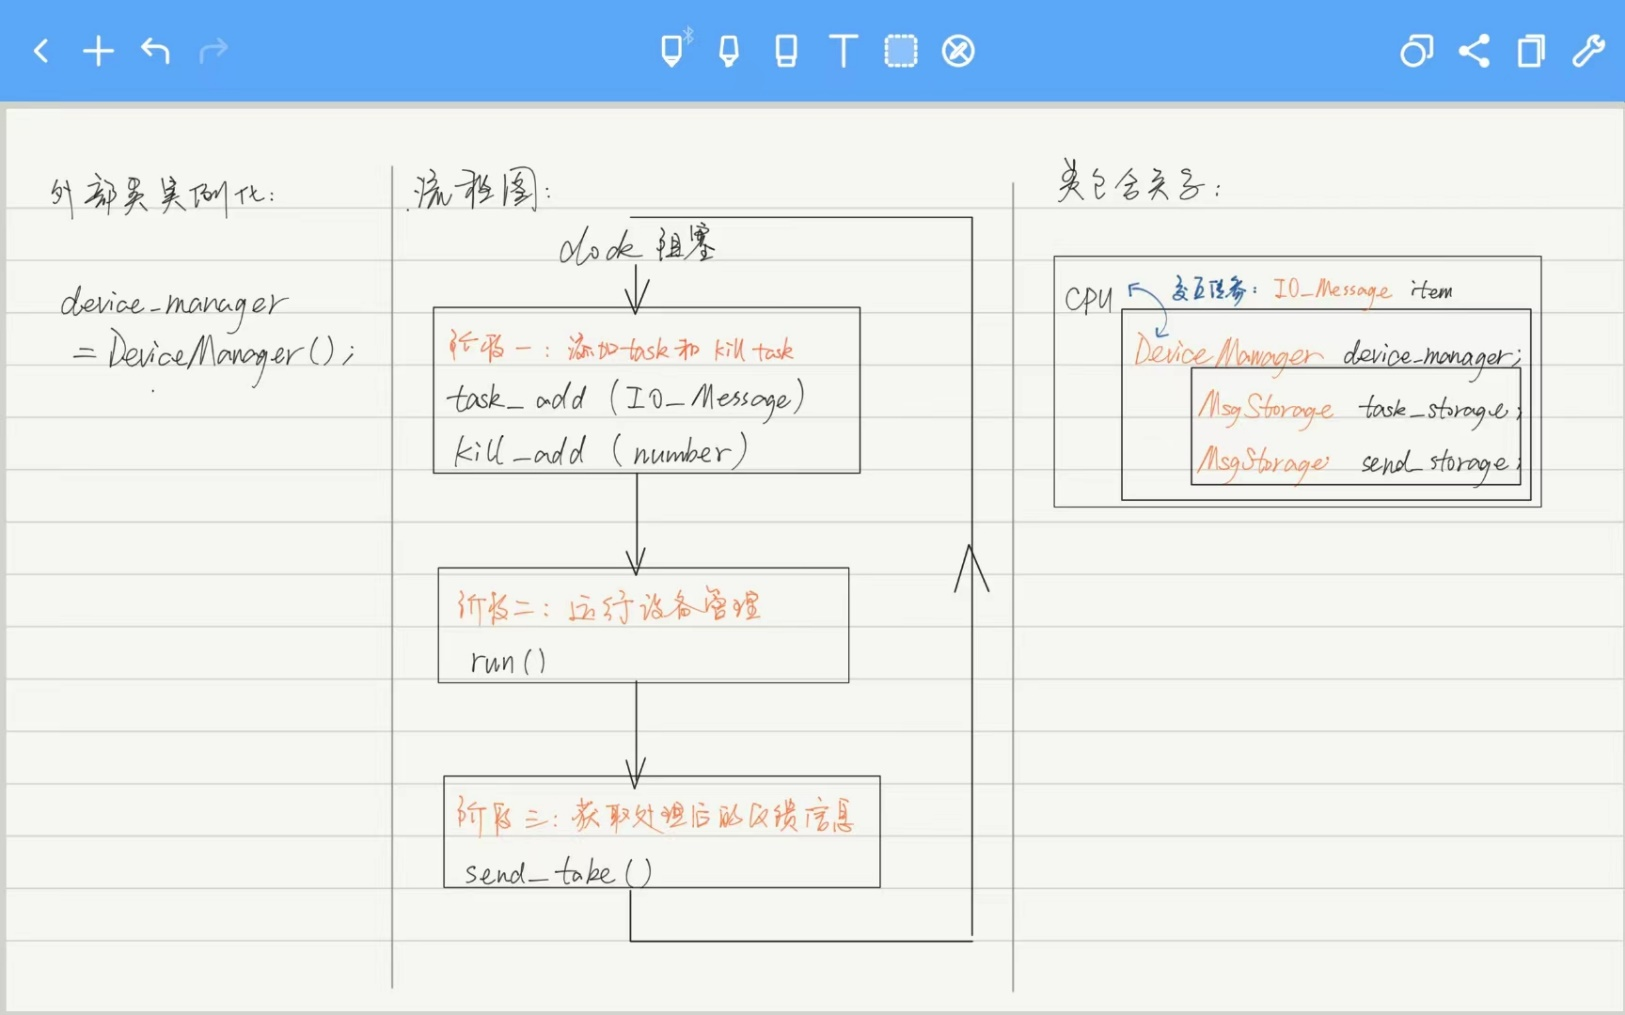 外部类实例化:
device_manager
= DeviceManager();
流程图:
clock 阻塞
阶段一: 添加task和 kill task
task_add (IO_Message)
kill_add (number)
阶段二: 运行设备管理
run()
阶段三: 获取处理后的反馈信息
send_take()
类包含关系:
CPU
交互任务: IO_Message item
DeviceManager device_manager;
MsgStorage task_storage;
MsgStorage send_storage;
T